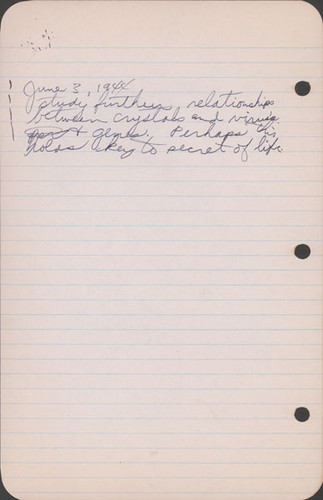 June 3, 1944
Study further, relationships
between crystals and virus
& genes. Perhaps this
holds key to secret of life.